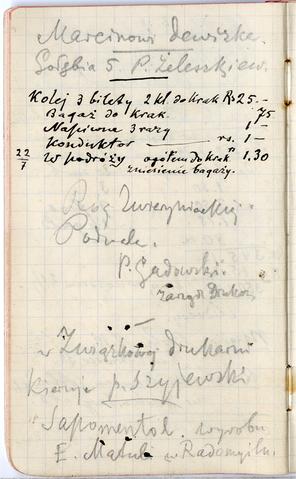 Marcinowi Dewizke.
Gołębia 5 P. Żeleszkiew.
Kolej 3 bilety 2 kl. do Krak Rs 25.-
Bagaż do Krak. 75
Napiwna 3 razy 1-
Konduktor rs. 1-
22/7 w podróży ogółem do krak 1.30
zniesienie bagaży.
Róg Zwierzynieckiej
Podwale.
P. Gadowski.
zarząd Drukar
w Związkowej drukarni
Kieruje p. Szyjewski
Sapomentol. wyrobu
E. Matuli w Radomyślu.